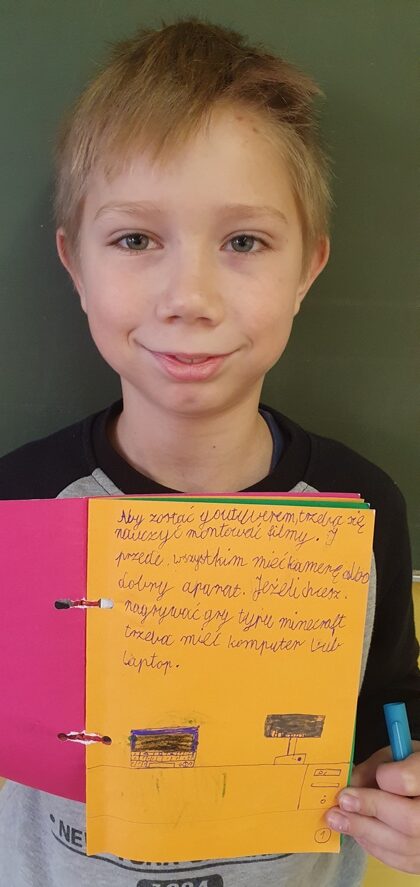 Aby zostać youtuberem, trzeba się
nauczyć montować filmy. I
przede wszystkim mieć kamerę albo
dobry aparat. Jeżeli chcesz
nagrywać gry typu minecraft
trzeba mieć komputer lub
laptop.
1
NEW YORK